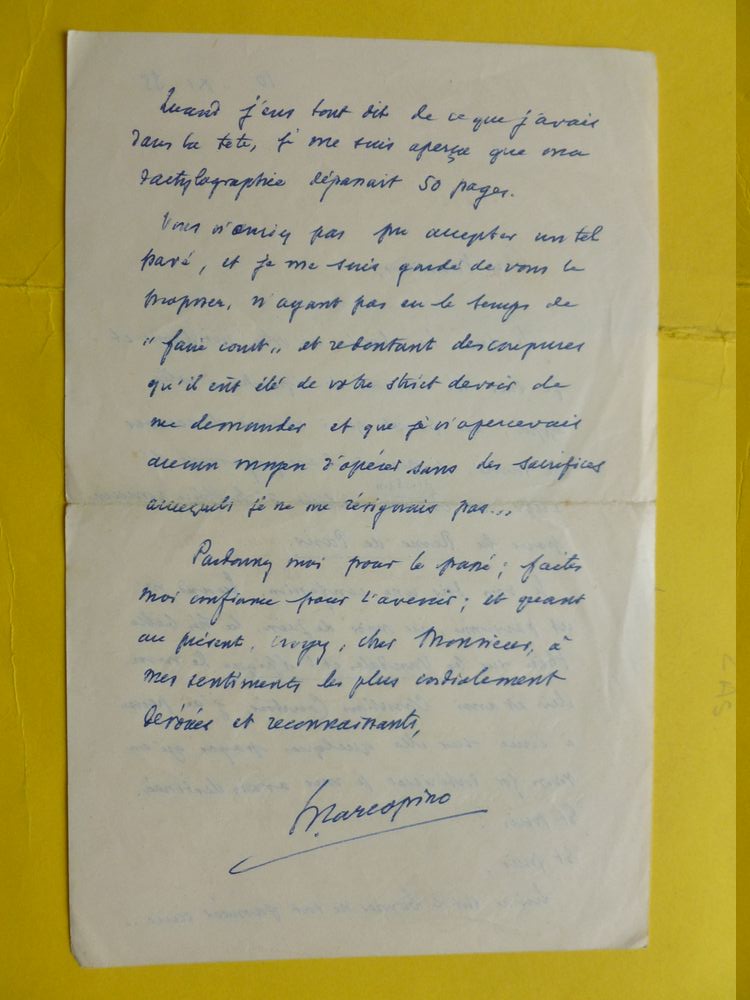 Quand j'eus tout dit de ce que j'avais
dans la tête, je me suis aperçu que ma
dactylographie dépassait 50 pages.
Vous n'auriez pas pu accepter un tel
pavé, et je me suis gardé de vous le
proposer, n'ayant pas eu le temps de
"faire court" et redoutant des coupures
qu'il eût été de votre strict devoir de
me demander et que je n'apercevais
aucun moyen d'opérer sans des sacrifices
auxquels je ne me résignais pas...
Pardonnez moi pour le passé ; faites
moi confiance pour l'avenir ; et quant
au présent, croyez, cher Monsieur, à
mes sentiments les plus cordialement
dévoués et reconnaissants,
LAS